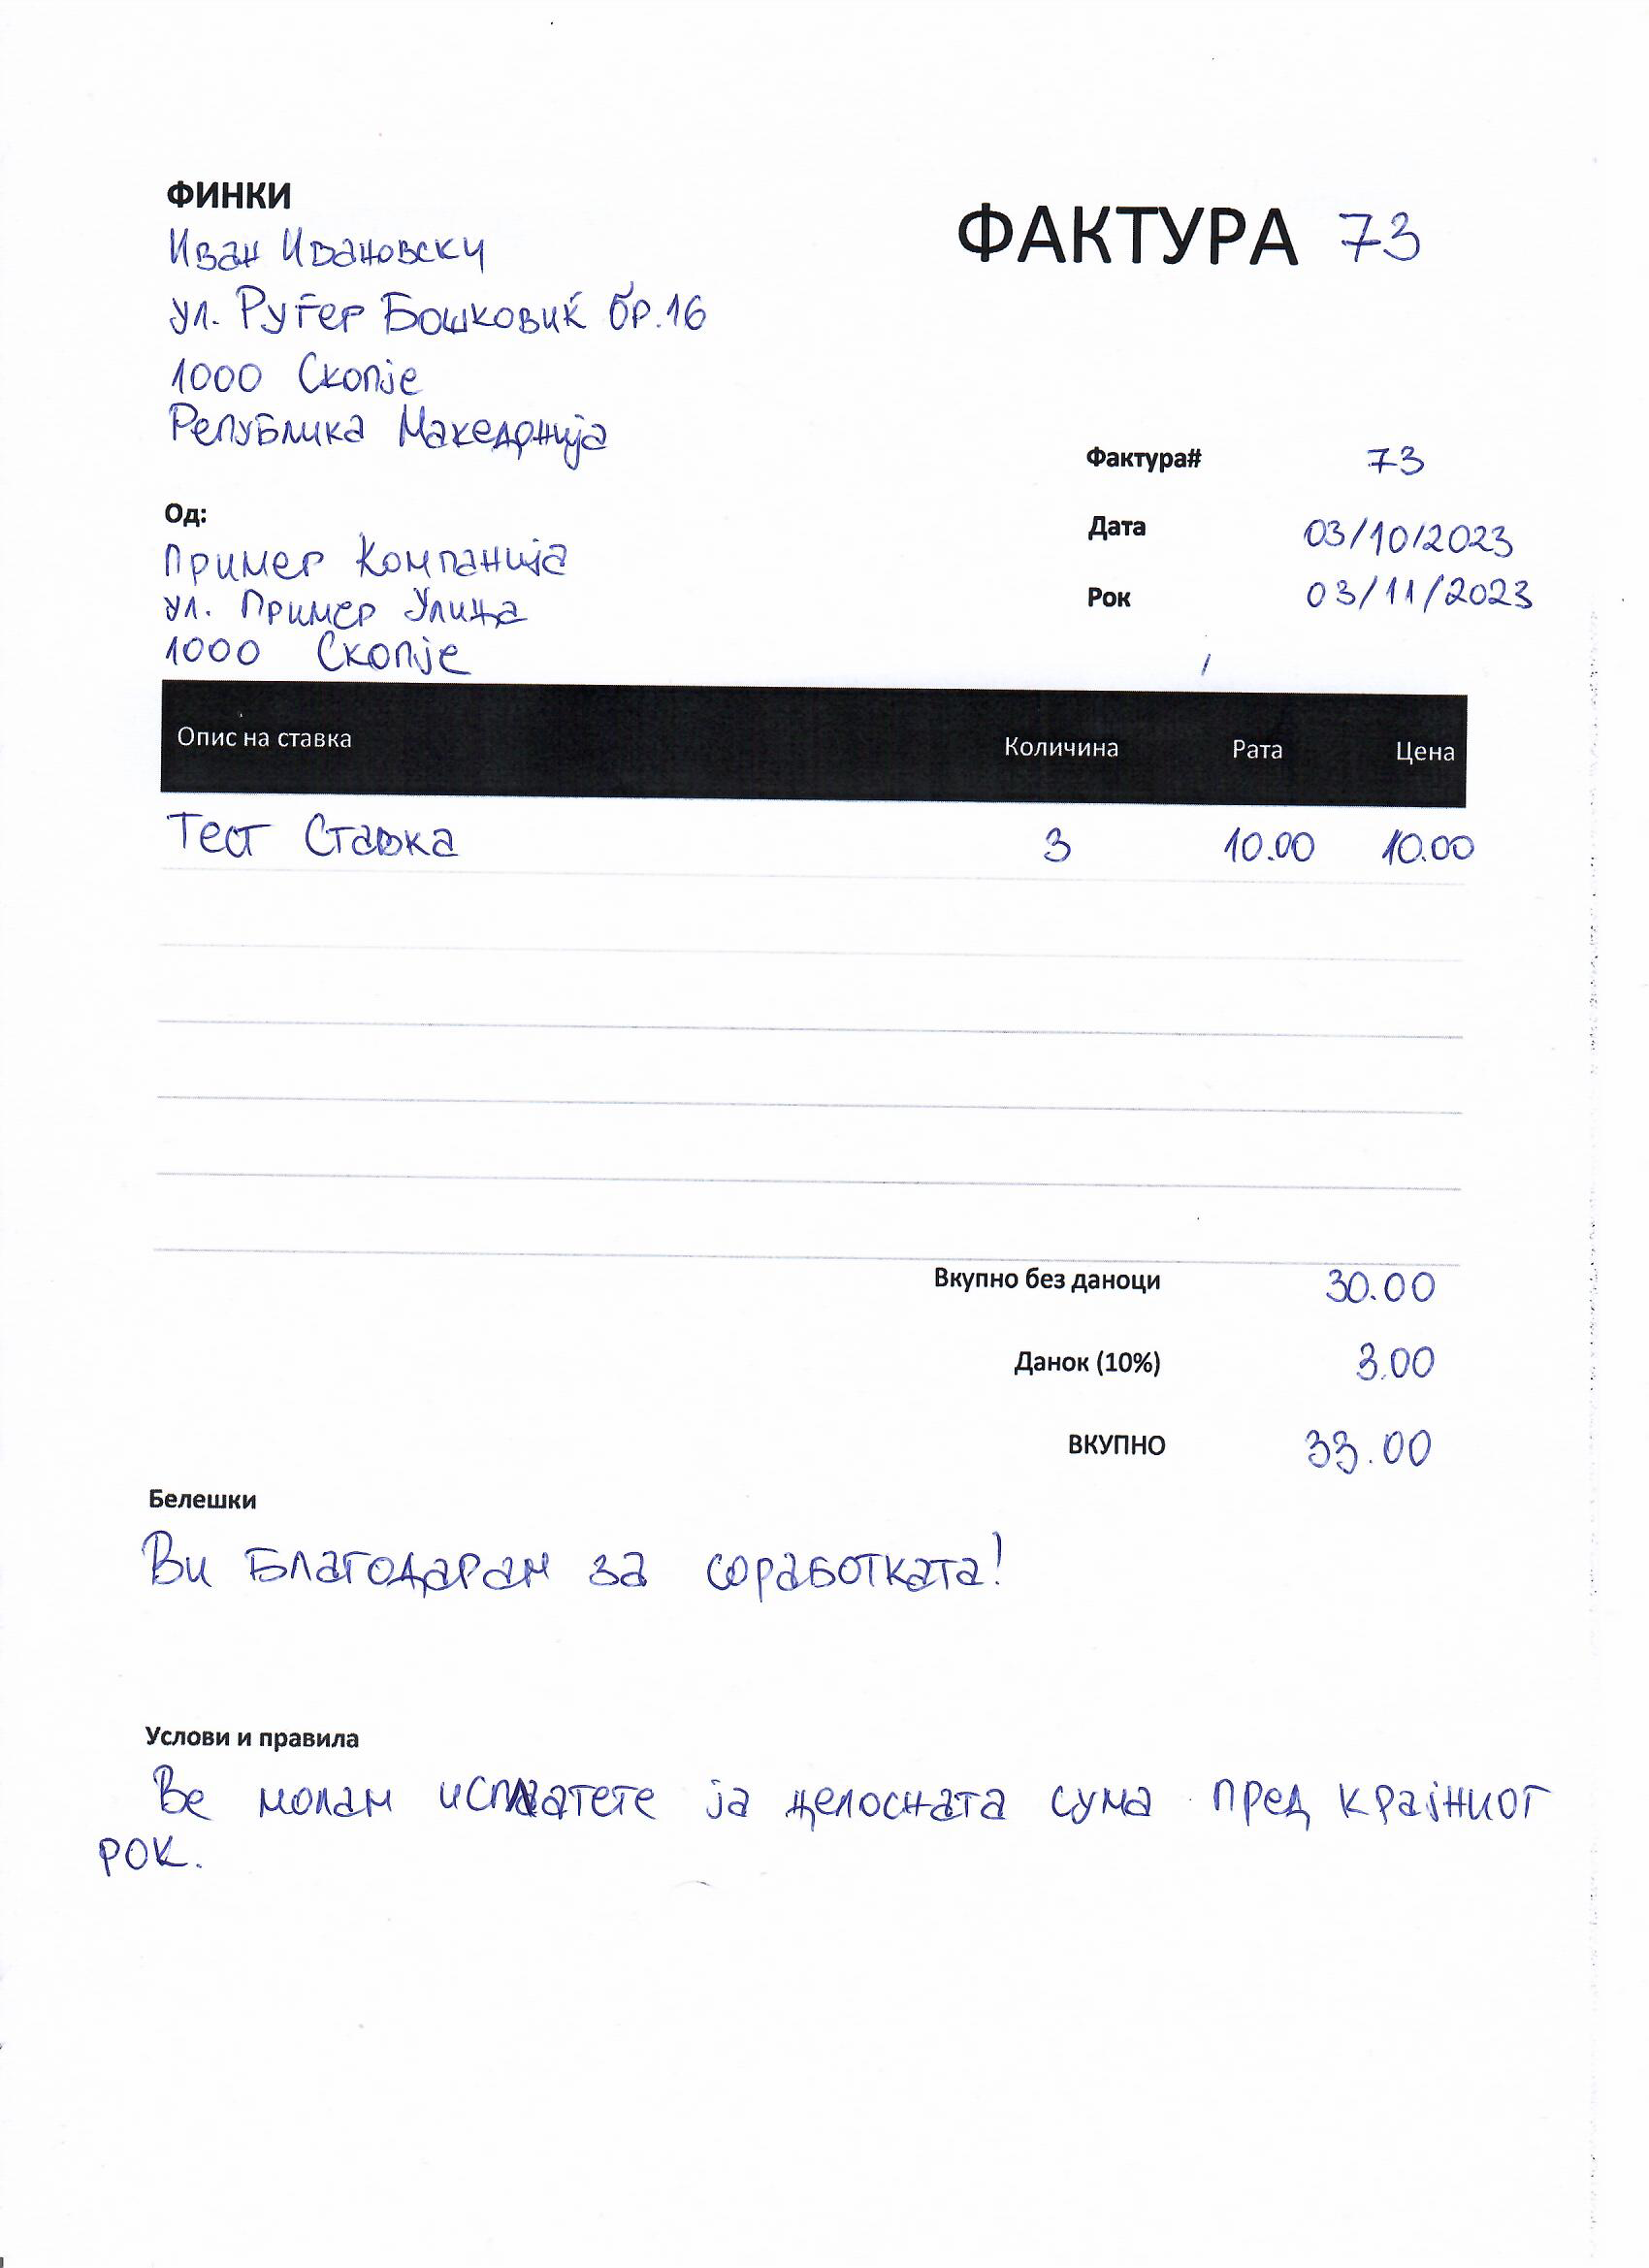 ФИНКИ
Иван Ивановски
ул. Руѓер Бошковиќ бр.16
1000 Скопје
Република Македонија
ФАКТУРА 73
Фактура# 73
Дата 03/10/2023
Рок 03/11/2023
Од:
Пример Компанија
ул. Пример Улица
1000 Скопје
Опис на ставка Количина Рата Цена
Тест Ставка 3 10.00 10.00
Вкупно без даноци 30.00
Данок (10%) 3.00
ВКУПНО 33.00
Белешки
Ви Благодарам за соработката!
Услови и правила
Ве молам исплатете ја целосната сума пред крајниот
рок.